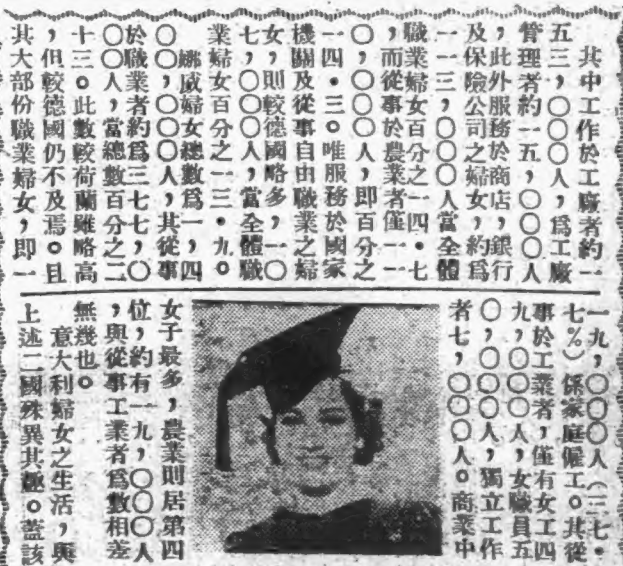 其中工作於工廠者約一
五三，〇〇〇人，爲工廠
管理者約一五，〇〇〇人
，此外服務於商店，銀行
及保險公司之婦女，約爲
一一三，〇〇〇人當全體
職業婦女百分之一四・七
，而從事於農業者僅一一
〇，〇〇〇人，即百分之
一四・三。唯服務於國家
機關及從事自由職業之婦
女，則較德國略多，一〇
七，〇〇〇人，當全體職
業婦女百分之一三・九。
挪威婦女總數爲一，四
〇〇，〇〇〇人，其從事
於職業者約爲三七七，〇
〇〇人，當總數百分之二
十三。此數較荷蘭雖略高
，但較德國仍不及焉。且
其大部份職業婦女，即一
一九，〇〇〇人（三七・
七％）係家庭僱工。其從
事於工業者，僅有女工四
九，〇〇〇人，女職員五
〇，〇〇〇人，獨立工作
者七，〇〇〇人。商業中
女子最多，農業則居第四
位，約有一九，〇〇〇人
，與從事工業者爲數相差
無幾也。
意大利婦女之生活，與
上述二國殊異其趣。蓋該